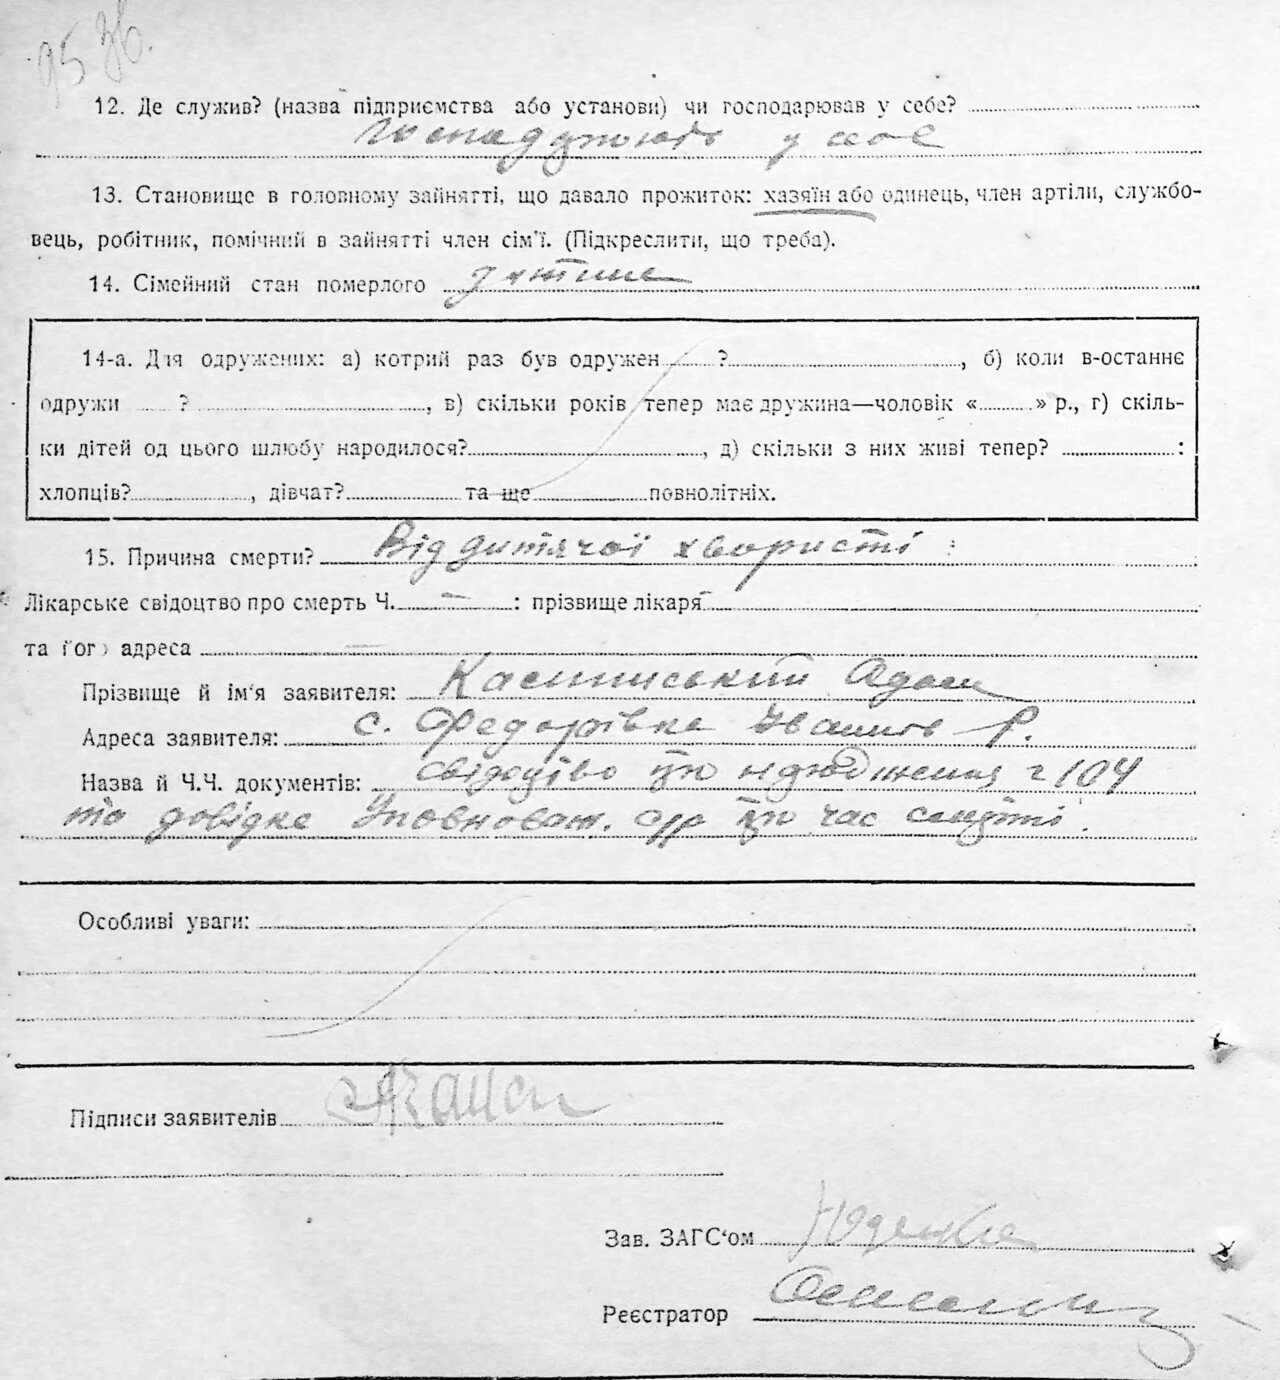 95 зв.
12. Де служив? (назва підприємства або установи) чи господарював у себе?
у себе
13. Становище в головному зайнятті, що давало прожиток: хазяїн або одинець, член артіли, службо-
вець, робітник, помічний в зайнятті член сім'ї. (Підкреслити, що треба).
14. Сімейний стан померлого дитина
14-а. Для одружених: а) котрий раз був одружен ?, б) коли в-останнє
одружи ?, в) скільки років тепер має дружина—чоловік « » р., г) скіль-
ки дітей од цього шлюбу народилося?, д) скільки з них живі тепер? :
хлопців?, дівчат? та ще повнолітніх.
15. Причина смерти? Від дитячої хвористі
Лікарське свідоцтво про смерть Ч. — : прізвище лікаря —
та його адреса —
Прізвище й ім'я заявителя: Адам
Адреса заявителя: с. Федорівка Іванків р.
Назва й Ч.Ч. документів: свідоцтво про народження 104
та довідка Уповноваж. с/р про час смерті.
Особливі уваги:
Підписи заявителів
Зав. ЗАГС'ом
Реєстратор